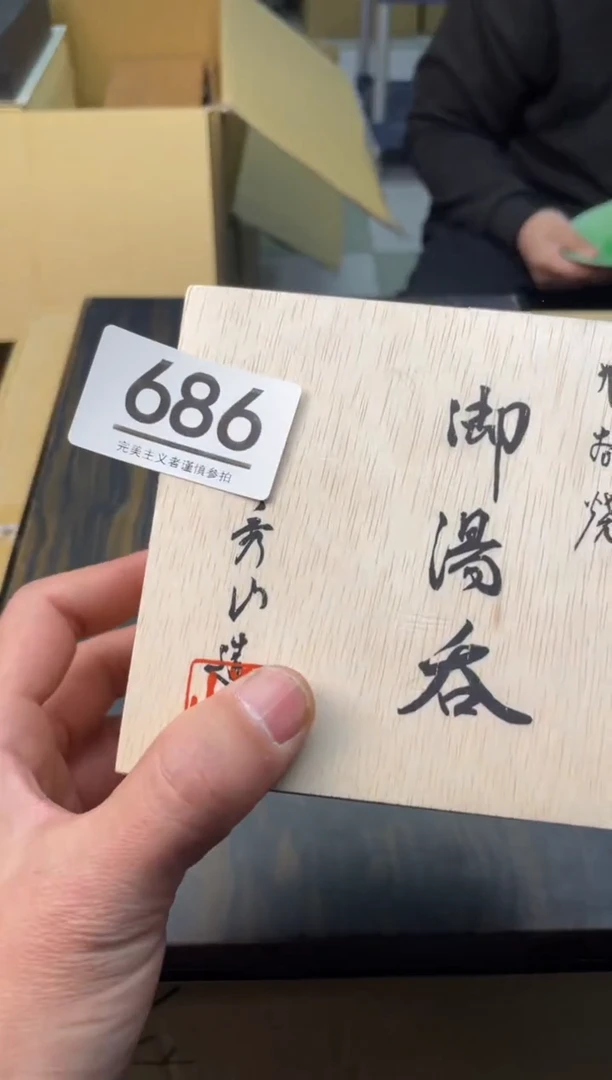 686
完美主义者谨慎参拍
御湯呑
秀山造